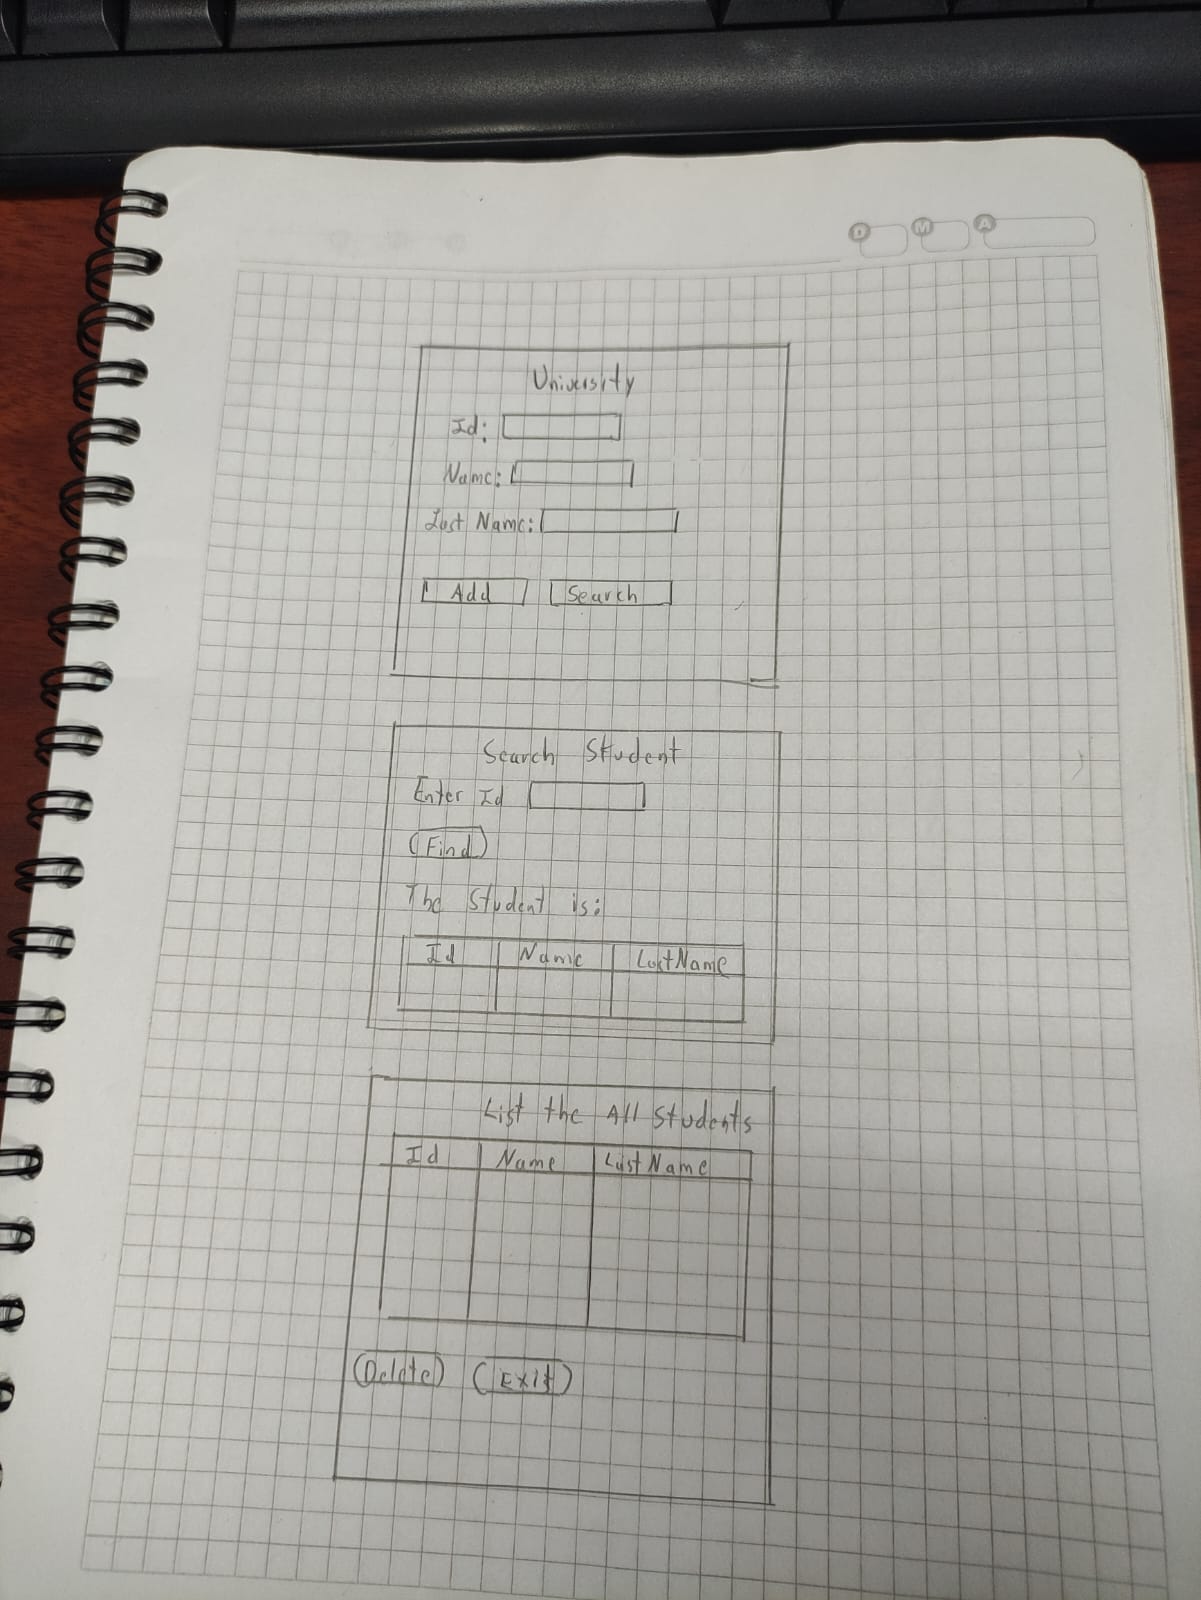 D M A
University
Id:
Name:
Last Name:
Add Search
Search Student
Enter Id
Find
The Student is:
Id Name LastName
List the All Students
Id Name LastName
Delete Exit